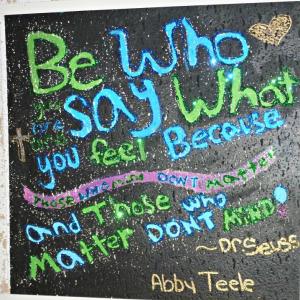 Be Who
you
are
and
say What
you feel Because
Those who mind DON'T Matter
and Those who
Matter DONT MIND!
~Dr Seuss
Abby Teele